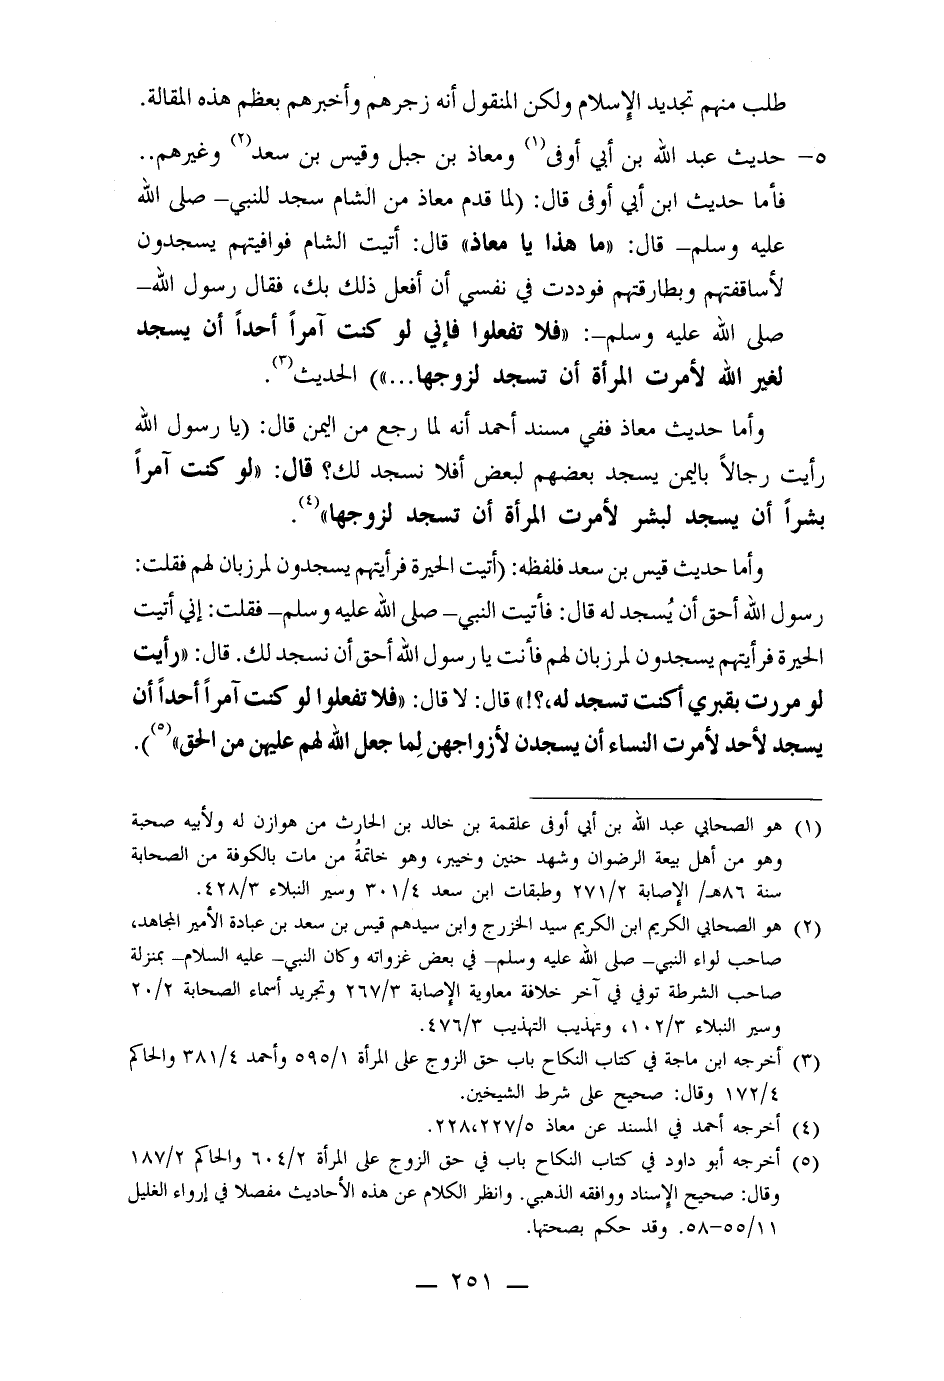 طلب منهم تجديد الإسلام ولكن المنقول أنه زجرهم وأخبرهم بعظم هذه المقالة.
٥- حديث عبد الله بن أبي أوفى(١) ومعاذ بن جبل وقيس بن سعد(٢) وغيرهم..
فأما حديث ابن أبي أوفى قال: (لما قدم معاذ من الشام سجد للنبي- صلى الله
عليه وسلم- قال: «ما هذا يا معاذ» قال: أتيت الشام فوافيتهم يسجدون
لأساقفتهم وبطارقتهم فوددت في نفسي أن أفعل ذلك بك، فقال رسول الله-
صلى الله عليه وسلم-: «فلا تفعلوا فإني لو كنت آمراً أحداً أن يسجد
لغير الله لأمرت المرأة أن تسجد لزوجها...») الحديث(٣).
وأما حديث معاذ ففي مسند أحمد أنه لما رجع من اليمن قال: (يا رسول الله
رأيت رجالاً باليمن يسجد بعضهم لبعض أفلا نسجد لك؟ قال: «لو كنت آمراً
بشراً أن يسجد لبشر لأمرت المرأة أن تسجد لزوجها»(٤).
وأما حديث قيس بن سعد فلفظه: (أتيت الحيرة فرأيتهم يسجدون لمرزبان لهم فقلت:
رسول الله أحق أن يُسجد له قال: فأتيت النبي- صلى الله عليه وسلم- فقلت: إني أتيت
الحيرة فرأيتهم يسجدون لمرزبان لهم فأنت يا رسول الله أحق أن نسجد لك. قال: «رأيت
لو مررت بقبري أكنت تسجد له،؟!» قال: لا قال: «فلا تفعلوا لو كنت آمراً أحداً أن
يسجد لأحد لأمرت النساء أن يسجدن لأزواجهن لِما جعل الله لهم عليهن من الحق»(٥)).
(١) هو الصحابي عبد الله بن أبي أوفى علقمة بن خالد بن الحارث من هوازن له ولأبيه صحبة
وهو من أهل بيعة الرضوان وشهد حنين وخيبر، وهو خاتمةُ من مات بالكوفة من الصحابة
سنة ٨٦هـ/ الإصابة ٢٧١/٢ وطبقات ابن سعد ٣٠١/٤ وسير النبلاء ٤٢٨/٣.
(٢) هو الصحابي الكريم ابن الكريم سيد الخزرج وابن سيدهم قيس بن سعد بن عبادة الأمير المجاهد،
صاحب لواء النبي- صلى الله عليه وسلم- في بعض غزواته وكان النبي- عليه السلام- بمنزلة
صاحب الشرطة توفي في آخر خلافة معاوية الإصابة ٢٦٧/٣ وتجريد أسماء الصحابة ٢٠/٢
وسير النبلاء ١٠٢/٣، وتهذيب التهذيب ٤٧٦/٣.
(٣) أخرجه ابن ماجة في كتاب النكاح باب حق الزوج على المرأة ٥٩٥/١ وأحمد ٣٨١/٤ والحاكم
١٧٢/٤ وقال: صحيح على شرط الشيخين.
(٤) أخرجه أحمد في المسند عن معاذ ٢٢٨،٢٢٧/٥.
(٥) أخرجه أبو داود في كتاب النكاح باب في حق الزوج على المرأة ٦٠٤/٢ والحاكم ١٨٧/٢
وقال: صحيح الإسناد ووافقه الذهبي. وانظر الكلام عن هذه الأحاديث مفصلا في إرواء الغليل
٥٨-٥٥/١١. وقد حكم بصحتها.
— ٢٥١ —